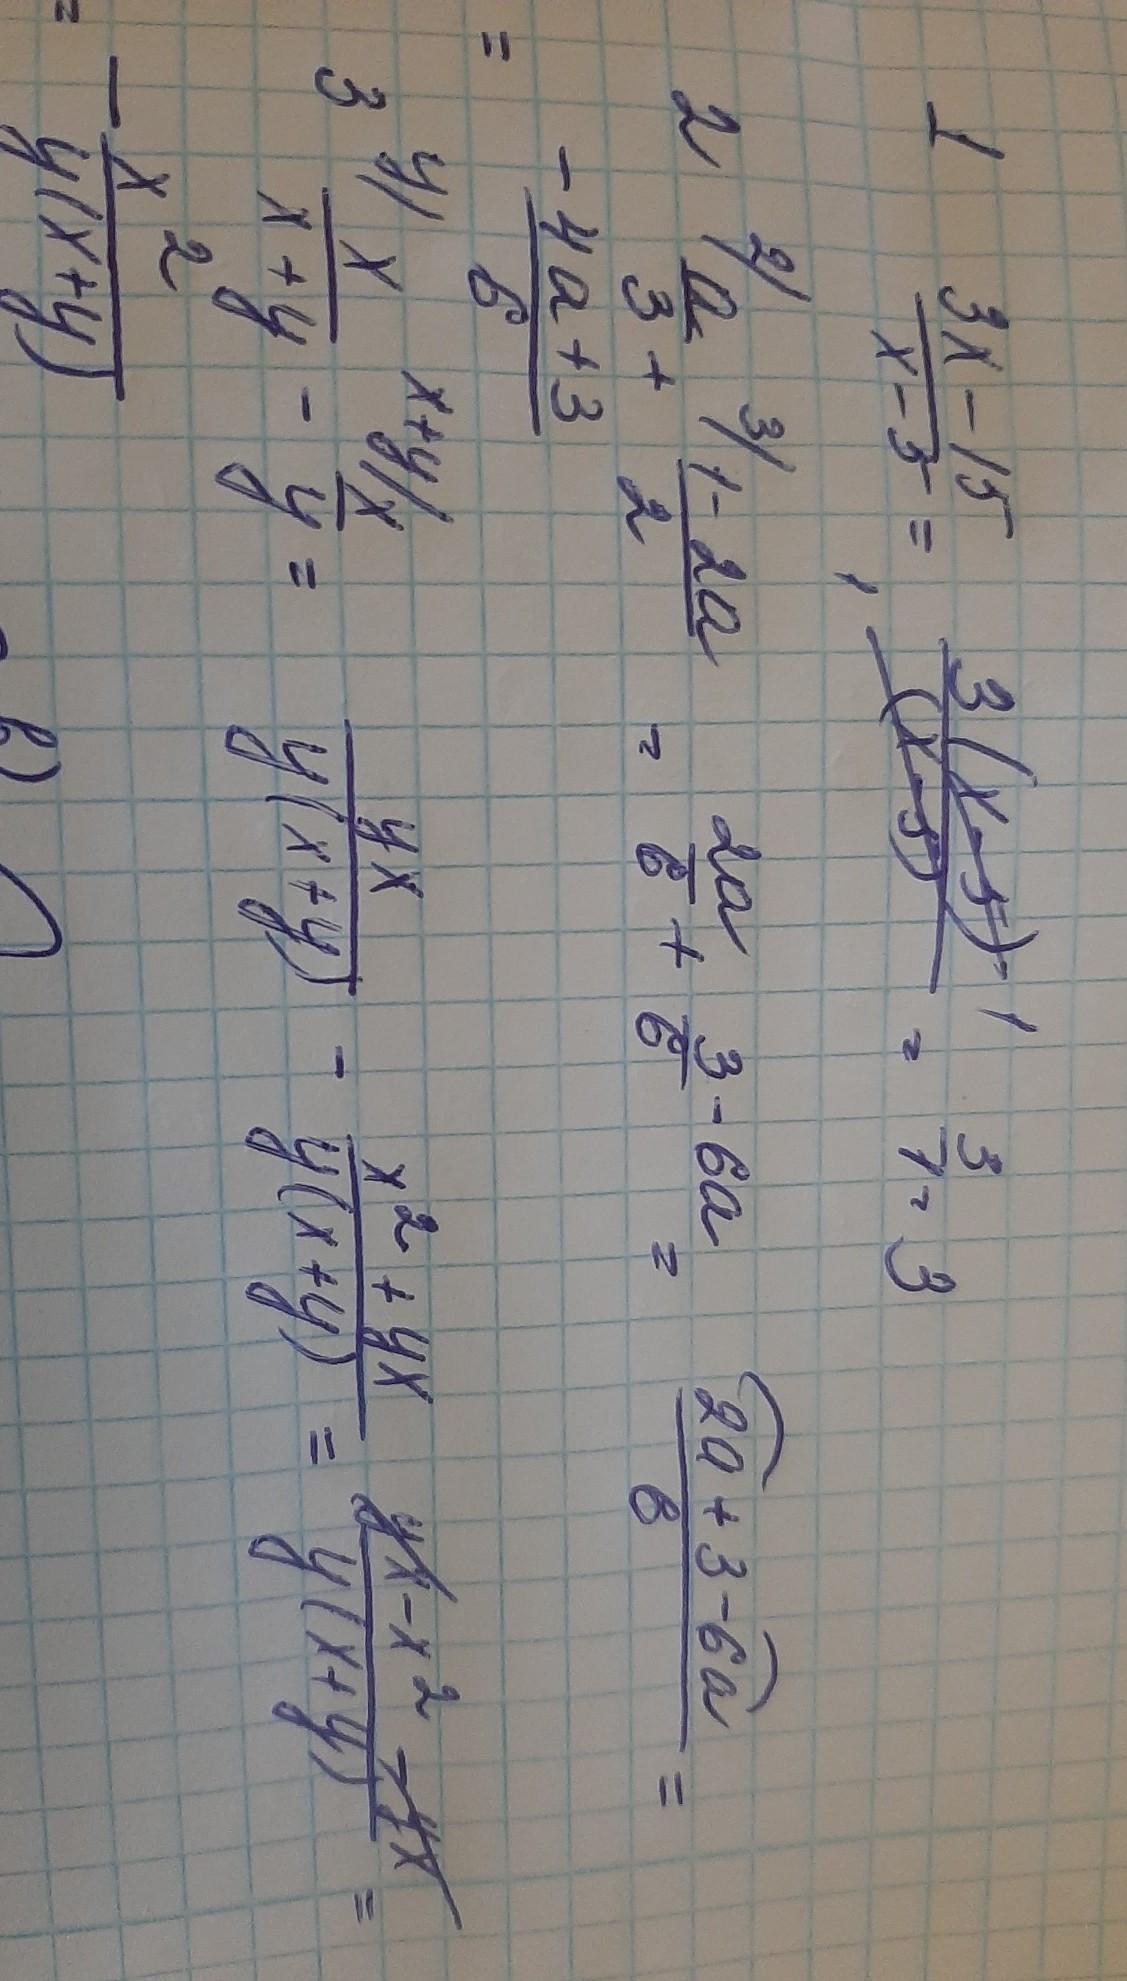 1 (3x - 15)/(x - 5) = (3(x - 5) · 1)/(1 (x - 5)) = 3/1 = 3
2 2/ a/3 + 3/ (1 - 2a)/2 = 2a/6 + (3 - 6a)/6 = (2a + 3 - 6a)/6 =
= (-4a + 3)/6
3 y/ x/(x + y) - x+y/ x/y = yx/(y(x + y)) - (x² + yx)/(y(x + y)) = (yx - x² - yx)/(y(x + y)) =
= - x²/(y(x + y))